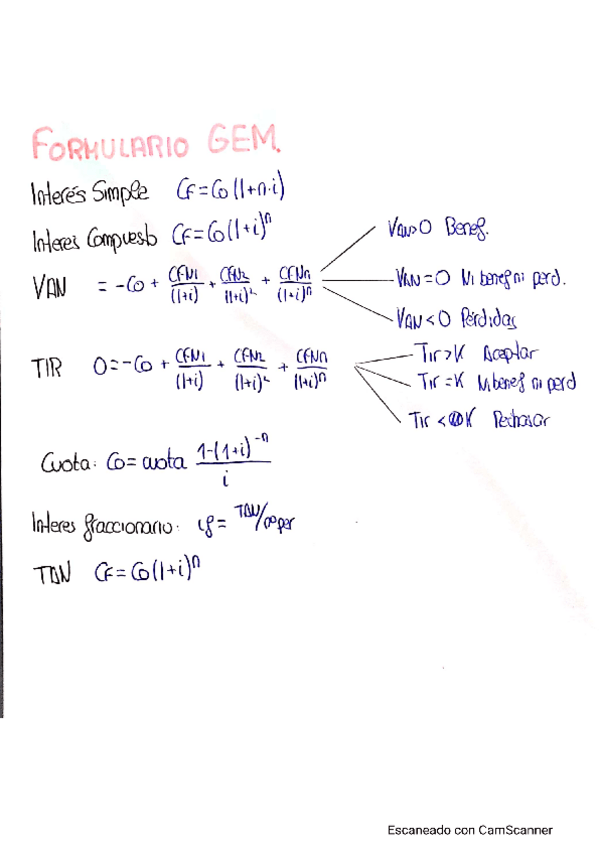 FORMULARIO GEM.
Interés Simple CF = Co (1+n·i)
Interes Compuesto CF = Co (1+i)^n
VAN = -Co + CFN1/(1+i) + CFN2/(1+i)^2 + CFNn/(1+i)^n
VAN>0 Benef.
VAN=0 Ni benef ni perd.
VAN<0 Pérdidas
TIR 0=-Co + CFN1/(1+i) + CFN2/(1+i)^2 + CFNn/(1+i)^n
Tir>K Aceptar
Tir=K Ni benef ni perd
Tir<K Rechazar
Cuota: Co= cuota 1-(1+i)^-n / i
Interes fraccionario: if = TAN/nº per
TAN CF = Co (1+i)^n
Escaneado con CamScanner